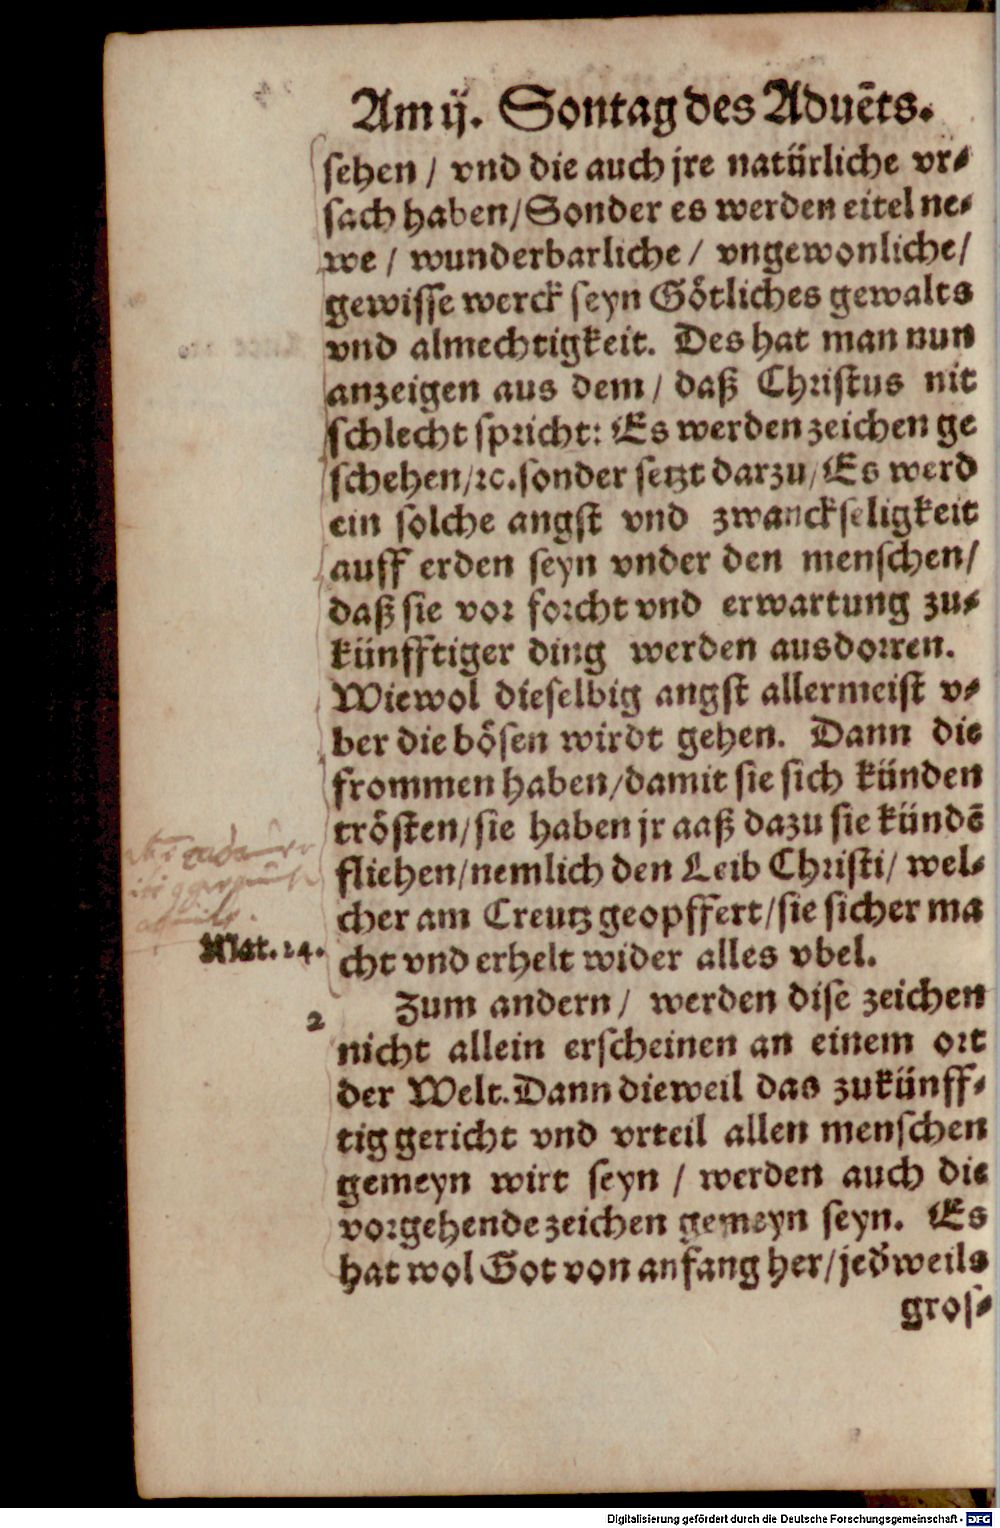 Am ij. Sontag des Aduēts.
sehen / vnd die auch jre natürliche vr⸗
sach haben/Sonder es werden eitel ne⸗
we / wunderbarliche / vngewonliche/
gewisse werck seyn Götliches gewalts
vnd almechtigkeit. Des hat man nun
anzeigen aus dem / daß Christus nit
schlecht spricht: Es werden zeichen ge
schehen/ꝛc.sonder setzt darzu/Es werd
ein solche angst vnd zwanckseligkeit
auff erden seyn vnder den menschen/
daß sie vor forcht vnd erwartung zu⸗
künfftiger ding werden ausdorren.
Wiewol dieselbig angst allermeist v⸗
ber die bösen wirdt gehen. Dann die
frommen haben/damit sie sich künden
trösten/sie haben jr aaß dazu sie kündē
fliehen/nemlich den Leib Christi/ wel⸗
cher am Creutz geopffert/sie sicher ma
Mat. 24.
cht vnd erhelt wider alles vbel.
2
Zum andern / werden dise zeichen
nicht allein erscheinen an einem ort
der Welt. Dann dieweil das zukünff⸗
tig gericht vnd vrteil allen menschen
gemeyn wirt seyn / werden auch die
vorgehende zeichen gemeyn seyn. Es
hat wol Got von anfang her/jed̄weils
gros⸗
Digitalisierung gefördert durch die Deutsche Forschungsgemeinschaft - DFG